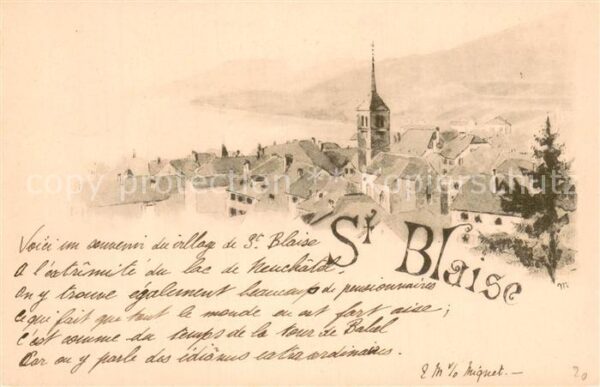 St Blaise
Voici un souvenir du village de St Blaise
A l'extrêmité du lac de Neuchâtel.
On y trouve également beaucoup de pensionnaires
Ce qui fait que tout le monde en est fort aise ;
C'est comme du temps de la tour de Babel
Car on y parle des idiômes extraordinaires.
Mignet. —
copyright protection
Kopierschutz
20